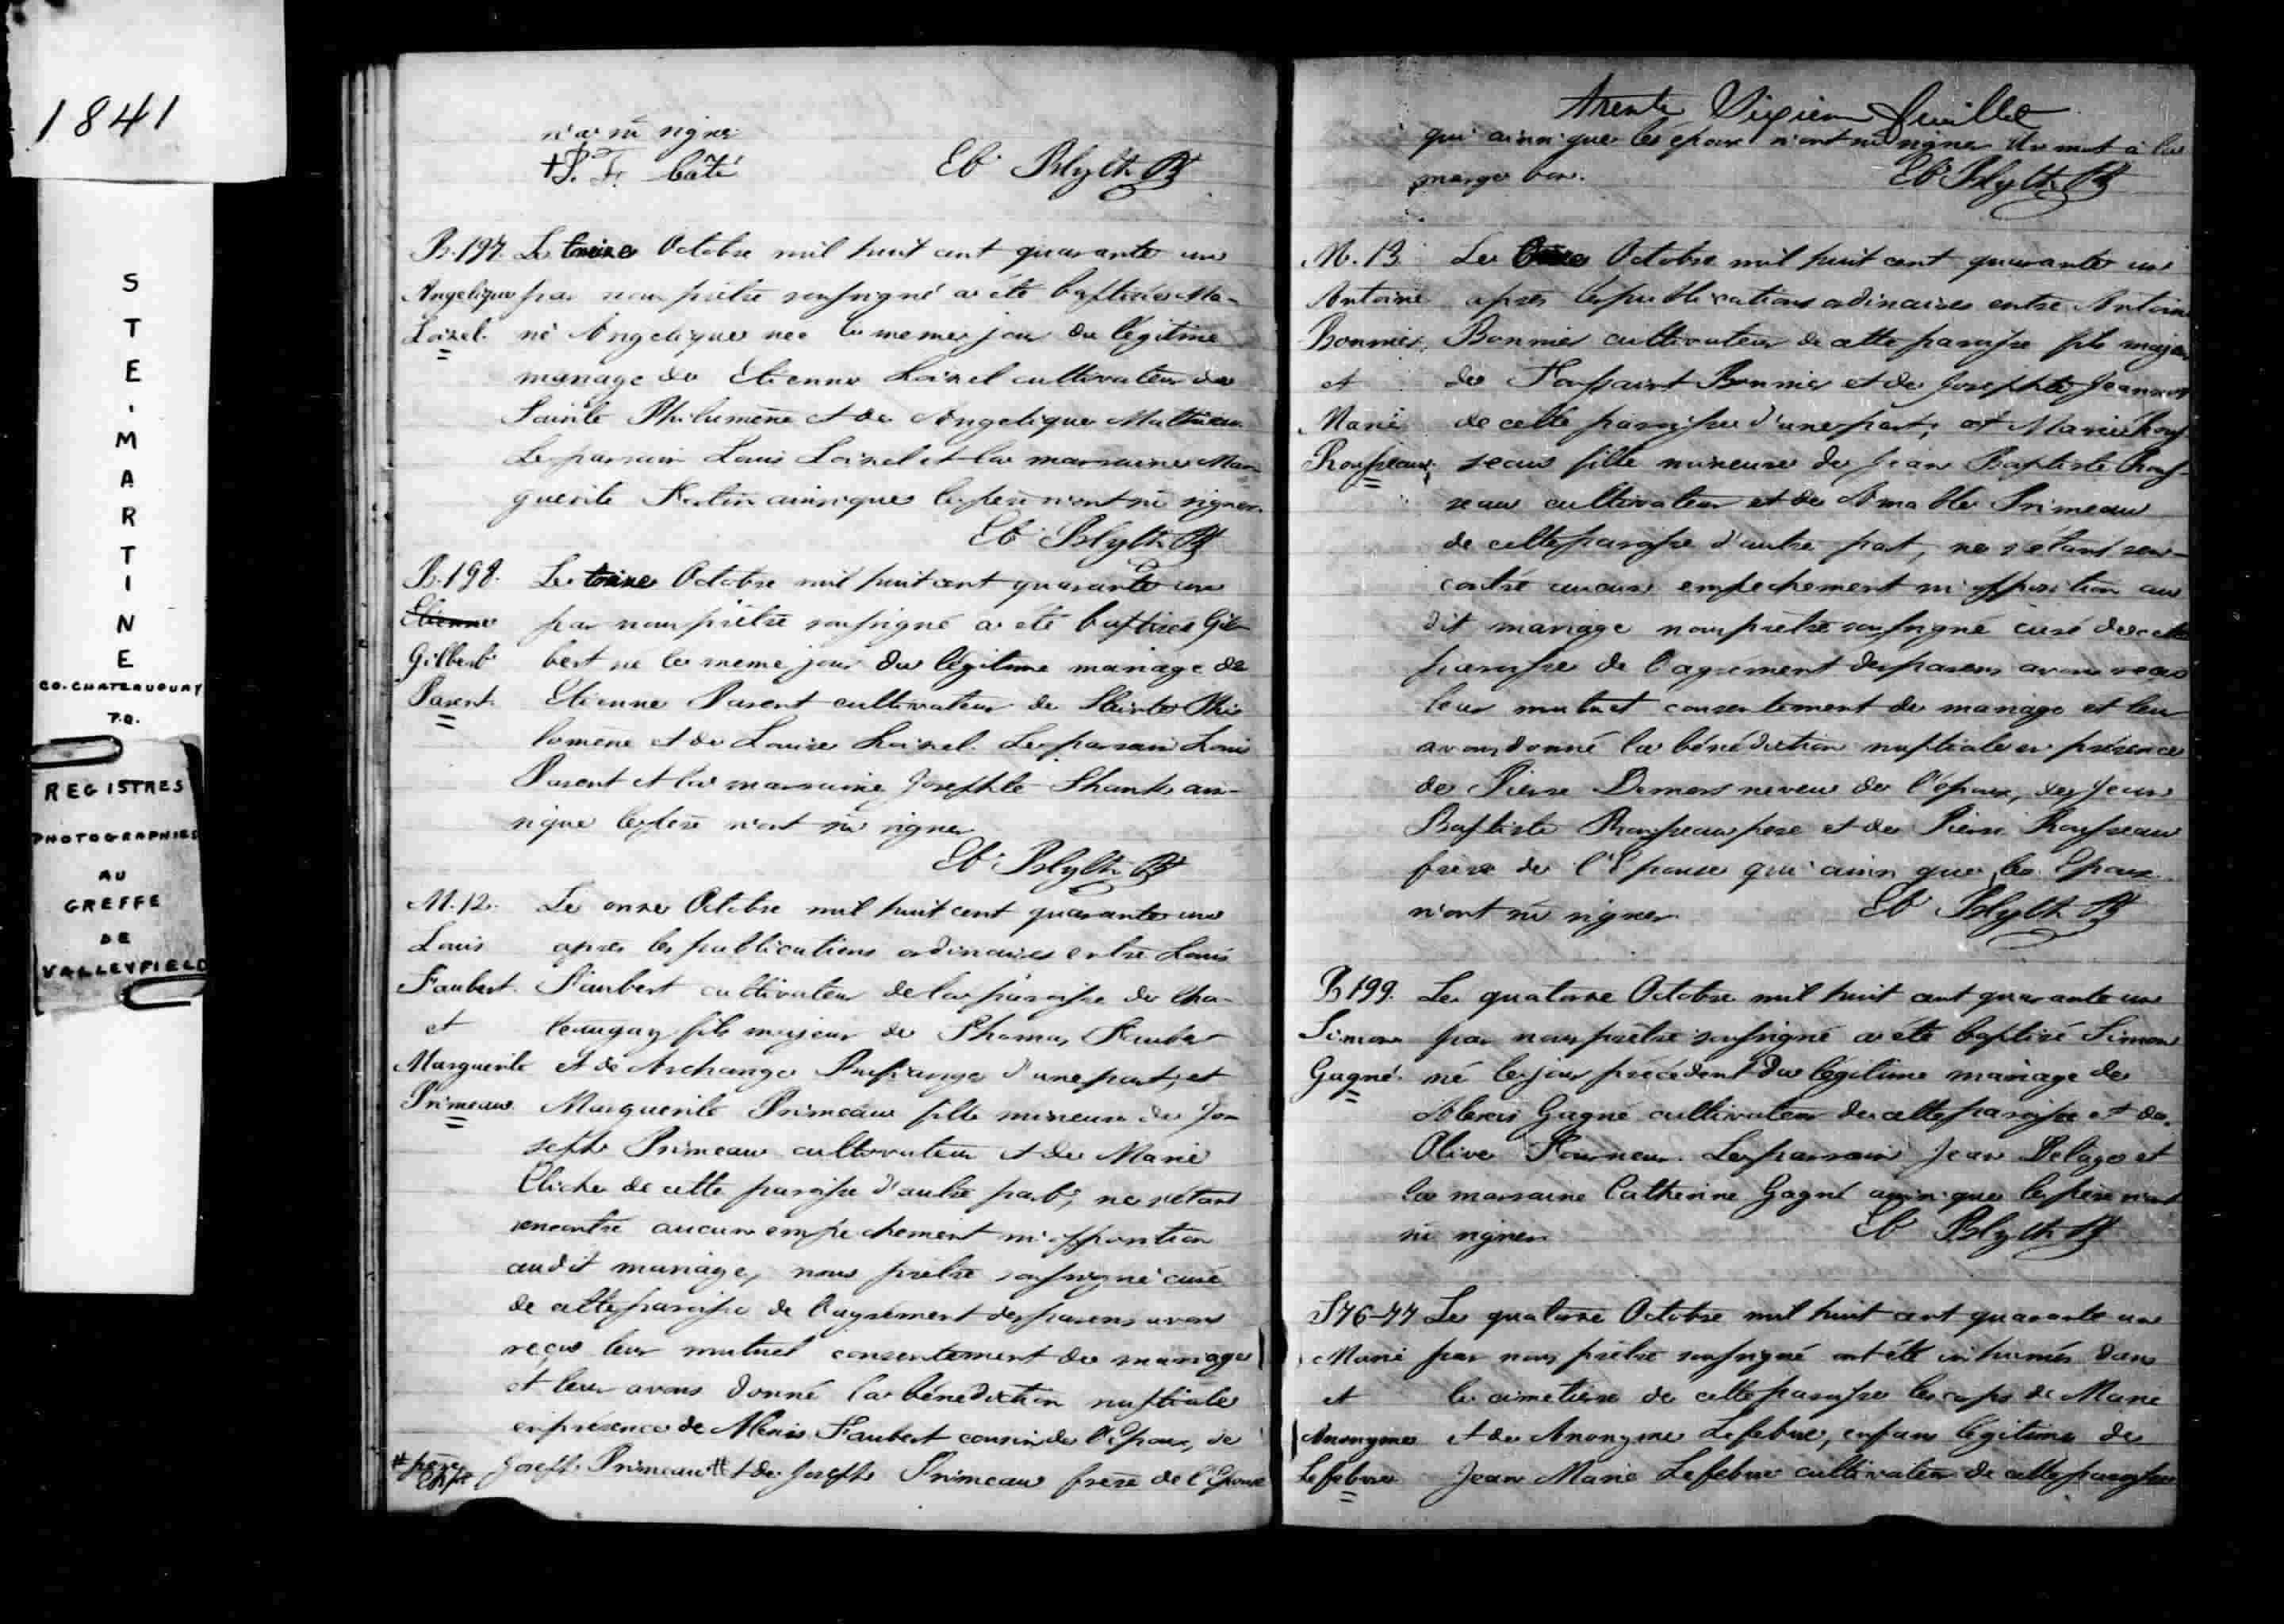 1841
STE. MARTINE
CO. CHATEAUGUAY
P.Q.
REGISTRES
PHOTOGRAPHIES
AU
GREFFE
DE
VALLEYFIELD
n'a su signer
+ P. T. bâté
Eb Blyth Ptr
B. 197. Le treize Octobre mil huit cent quarante un
Angelique par nous prêtre soussigné a été baptisée Ma-
Loizel. rie Angelique nee le meme jour du légitime
mariage de Etienne Loizel cultivateur de
Sainte Philumène et de Angelique Mathieu
Le parrain Louis Loizel et la marraine Mar-
guerite Fortin ainsi que le père n'ont su signer.
Eb Blyth Ptr
B. 198. Le treize Octobre mil huit cent quarante un
Etienne par nous prêtre soussigné a été baptisé Gil-
Gilbert bert né le meme jour du légitime mariage de
Parent. Etienne Parent cultivateur de Sainte Phi-
lomène et de Louise Loizel. Le parrain Louis
Parent et la marraine Josephte Shanks ain-
si que le père n'ont su signer
Eb Blyth Ptr
M. 12. Le onze Octobre mil huit cent quarante un
Louis après les publications ordinaires entre Louis
Faubert. Faubert cultivateur de la paroisse de Cha-
et teauguay fils majeur de Thomas Faubert
Marguerite et de Archange d'une part, et
Primeau. Marguerite Primeau fille mineure de Jo-
seph Primeau cultivateur et de Marie
Cliche de cette paroisse d'autre part; ne s'étant
rencontré aucun empechement ni opposition
audit mariage, nous prêtre soussigné curé
de cette paroisse de l'agrément des parens avons
reçu leur mutuel consentement de mariage
et leur avons donné la bénédiction nuptiale
en présence de Faubert cousin de l'Epoux, de
# père Joseph Primeau # et de Joseph Primeau frère de l'Epouse
Trente Sixieme feuillet
qui ainsi que les epoux n'ont su signer Un mot à la
marge bon.
Eb Blyth Ptr
M. 13 Le Octobre mil huit cent quarante un
Antoine après les publications ordinaires entre Antoine
Bonnier, Bonnier cultivateur de cette paroisse fils majeur
et de Toussaint Bonnier et de Josephte
Marie de cette paroisse d'une part, et Marie Rous-
Rousseau, seau fille mineure de Jean Baptiste Rous-
seau cultivateur et de Amable Primeau
de cette paroisse d'autre part, ne s'étant ren-
contré aucun empechement ni opposition au
dit mariage nous prêtre soussigné curé de cette
paroisse de l'agrément des parens avons recu
leur mutuel consentement de mariage et leur
avons donné la bénédiction nuptiale en présence
de Pierre Demers neveu de l'époux, de Jean
Baptiste Rousseau pere et de Pierre Rousseau
frere de l'Epouse qui ainsi que les Epoux
n'ont su signer.
Eb Blyth Ptr
B 199. Le quatorze Octobre mil huit cent quarante un
Simon par nous prêtre soussigné a été baptisé Simon
Gagné. né le jour précédent du légitime mariage de
Alexis Gagné cultivateur de cette paroisse et de
Olive Fourneur. Le parrain Jean Delage et
la marraine Catherine Gagné ainsi que le père n'ont
su signer
Eb Blyth Ptr
S 76-77 Le quatorze Octobre mil huit cent quarante un
Marie par nous prêtre soussigné ont été inhumés dans
et le cimetière de cette paroisse les corps de Marie
Anonyme et de Anonyme Lefebvre, enfans légitimes de
Lefebvre Jean Marie Lefebvre cultivateur de cette paroisse